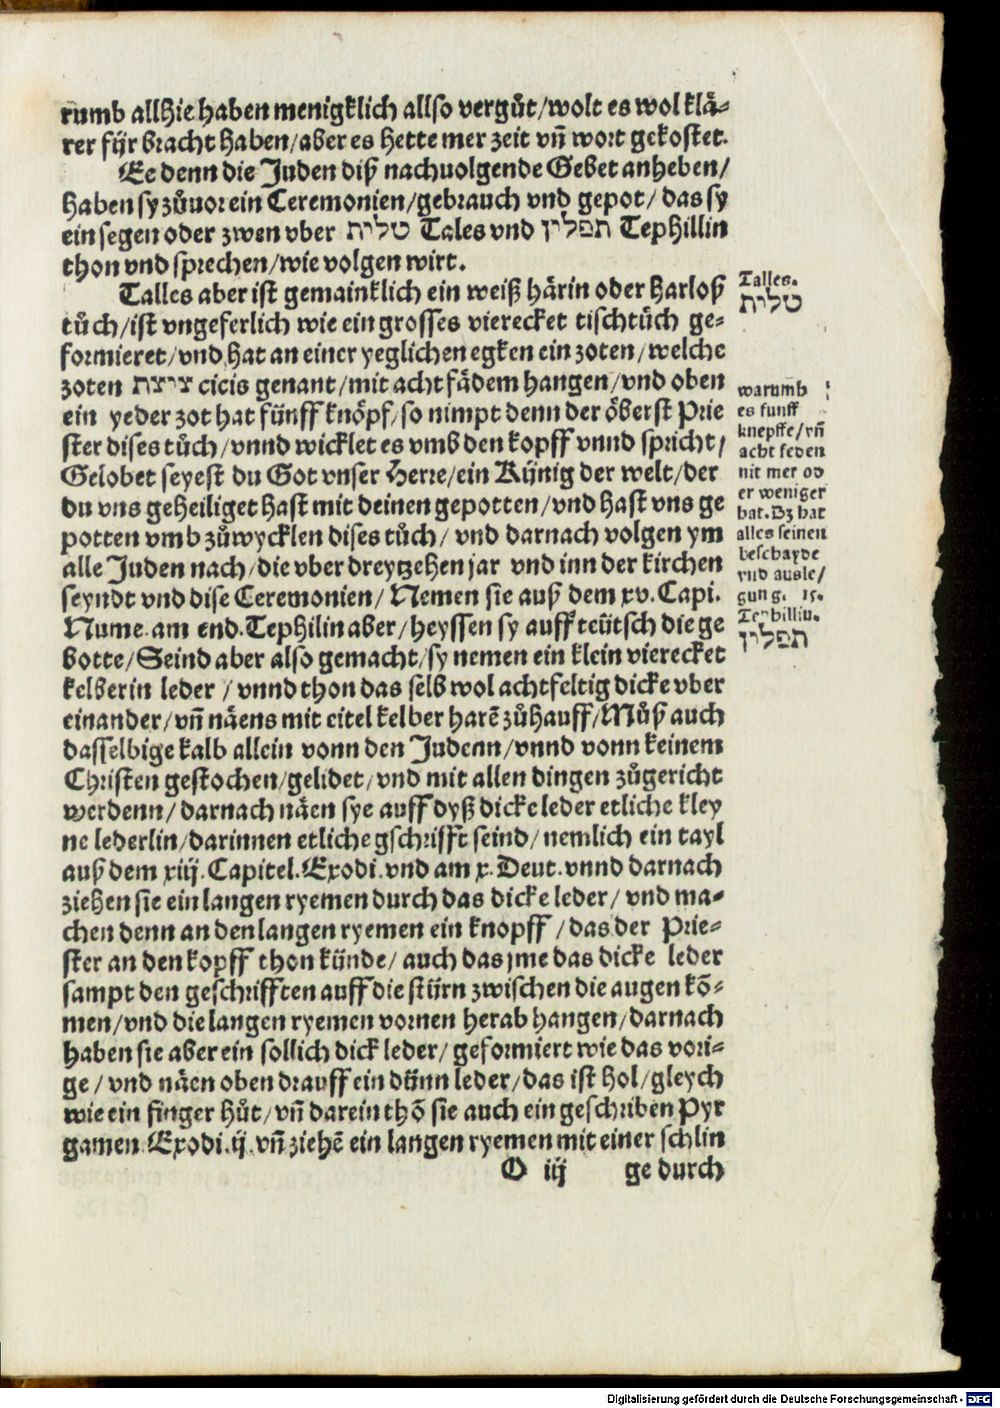 rumb allhie haben menigklich allso vergůt/wolt es wol klå⸗
rer für bracht haben/aber es hette mer zeit vñ wort gekostet.
Ee denn die Juden diß nachuolgende Gebet anheben/
haben sy zůuor ein Ceremonien/gebrauch vnd gepot/ das sy
ein segen oder zwen vber טלית Tales vnd תפלין Tephillin
thon vnd sprechen/wie volgen wirt.
Talles aber ist gemainklich ein weiß hårin oder harloß
tůch/ist vngeferlich wie ein grosses vierecket tischtůch ge⸗
formieret/vnd hat an einer yeglichen egken ein zoten/welche
zoten ציצת cicis genant/mit acht fådem hangen/vnd oben
ein yeder zot hat fünff knöpf/so nimpt denn der öberst Prie
ster dises tůch/vnnd wicklet es vmb den kopff vnnd spricht/
Gelobet seyest du Got vnser Herre/ein Künig der welt/der
du vns geheiliget hast mit deinen gepotten/vnd hast vns ge
potten vmb zůwycklen dises tůch/ vnd darnach volgen ym
alle Juden nach/die vber dreytzehen jar vnd inn der kirchen
seyndt vnd dise Ceremonien/ Nemen sie auß dem xv. Capi.
Nume. am end. Tephilin aber/heyssen sy auff teütsch die ge
botte/Seind aber also gemacht/sy nemen ein klein vierecket
kelberin leder / vnnd thon das selb wol achtfeltig dicke vber
einander/vñ nåens mit eitel kelber harē zůhauff/Můß auch
dasselbige kalb allein vonn den Judenn/vnnd vonn keinem
Christen gestochen/gelidet/vnd mit allen dingen zůgericht
werdenn/ darnach nåen sye auff dyß dicke leder etliche kley
ne lederlin/darinnen etliche gschrifft seind/nemlich ein tayl
auß dem xiij. Capitel. Exodi. vnd am x. Deut. vnnd darnach
ziehen sie ein langen ryemen durch das dicke leder/ vnd ma⸗
chen denn an den langen ryemen ein knopff /das der Prie⸗
ster an den kopff thon künde/ auch das jme das dicke leder
sampt den geschrifften auff die stürn zwischen die augen kō⸗
men/vnd die langen ryemen vornen herab hangen/darnach
haben sie aber ein sollich dick leder/ geformiert wie das vori⸗
ge/ vnd nåen oben drauff ein dünn leder/das ist hol/gleych
wie ein finger hůt/vñ darein thō sie auch ein geschriben Pyr
gamen Exodi. ij. vñ ziehē ein langen ryemen mit einer schlin
O iij ge durch
Talles.
טלית
warumb
es funff
knepffe/vñ
acht feden
nit mer od
er weniger
hat. Dz hat
alles seinen
beschayde
vnd ausle/
gung. 15.
Tephillin.
תפלין
Digitalisierung gefördert durch die Deutsche Forschungsgemeinschaft - DFG